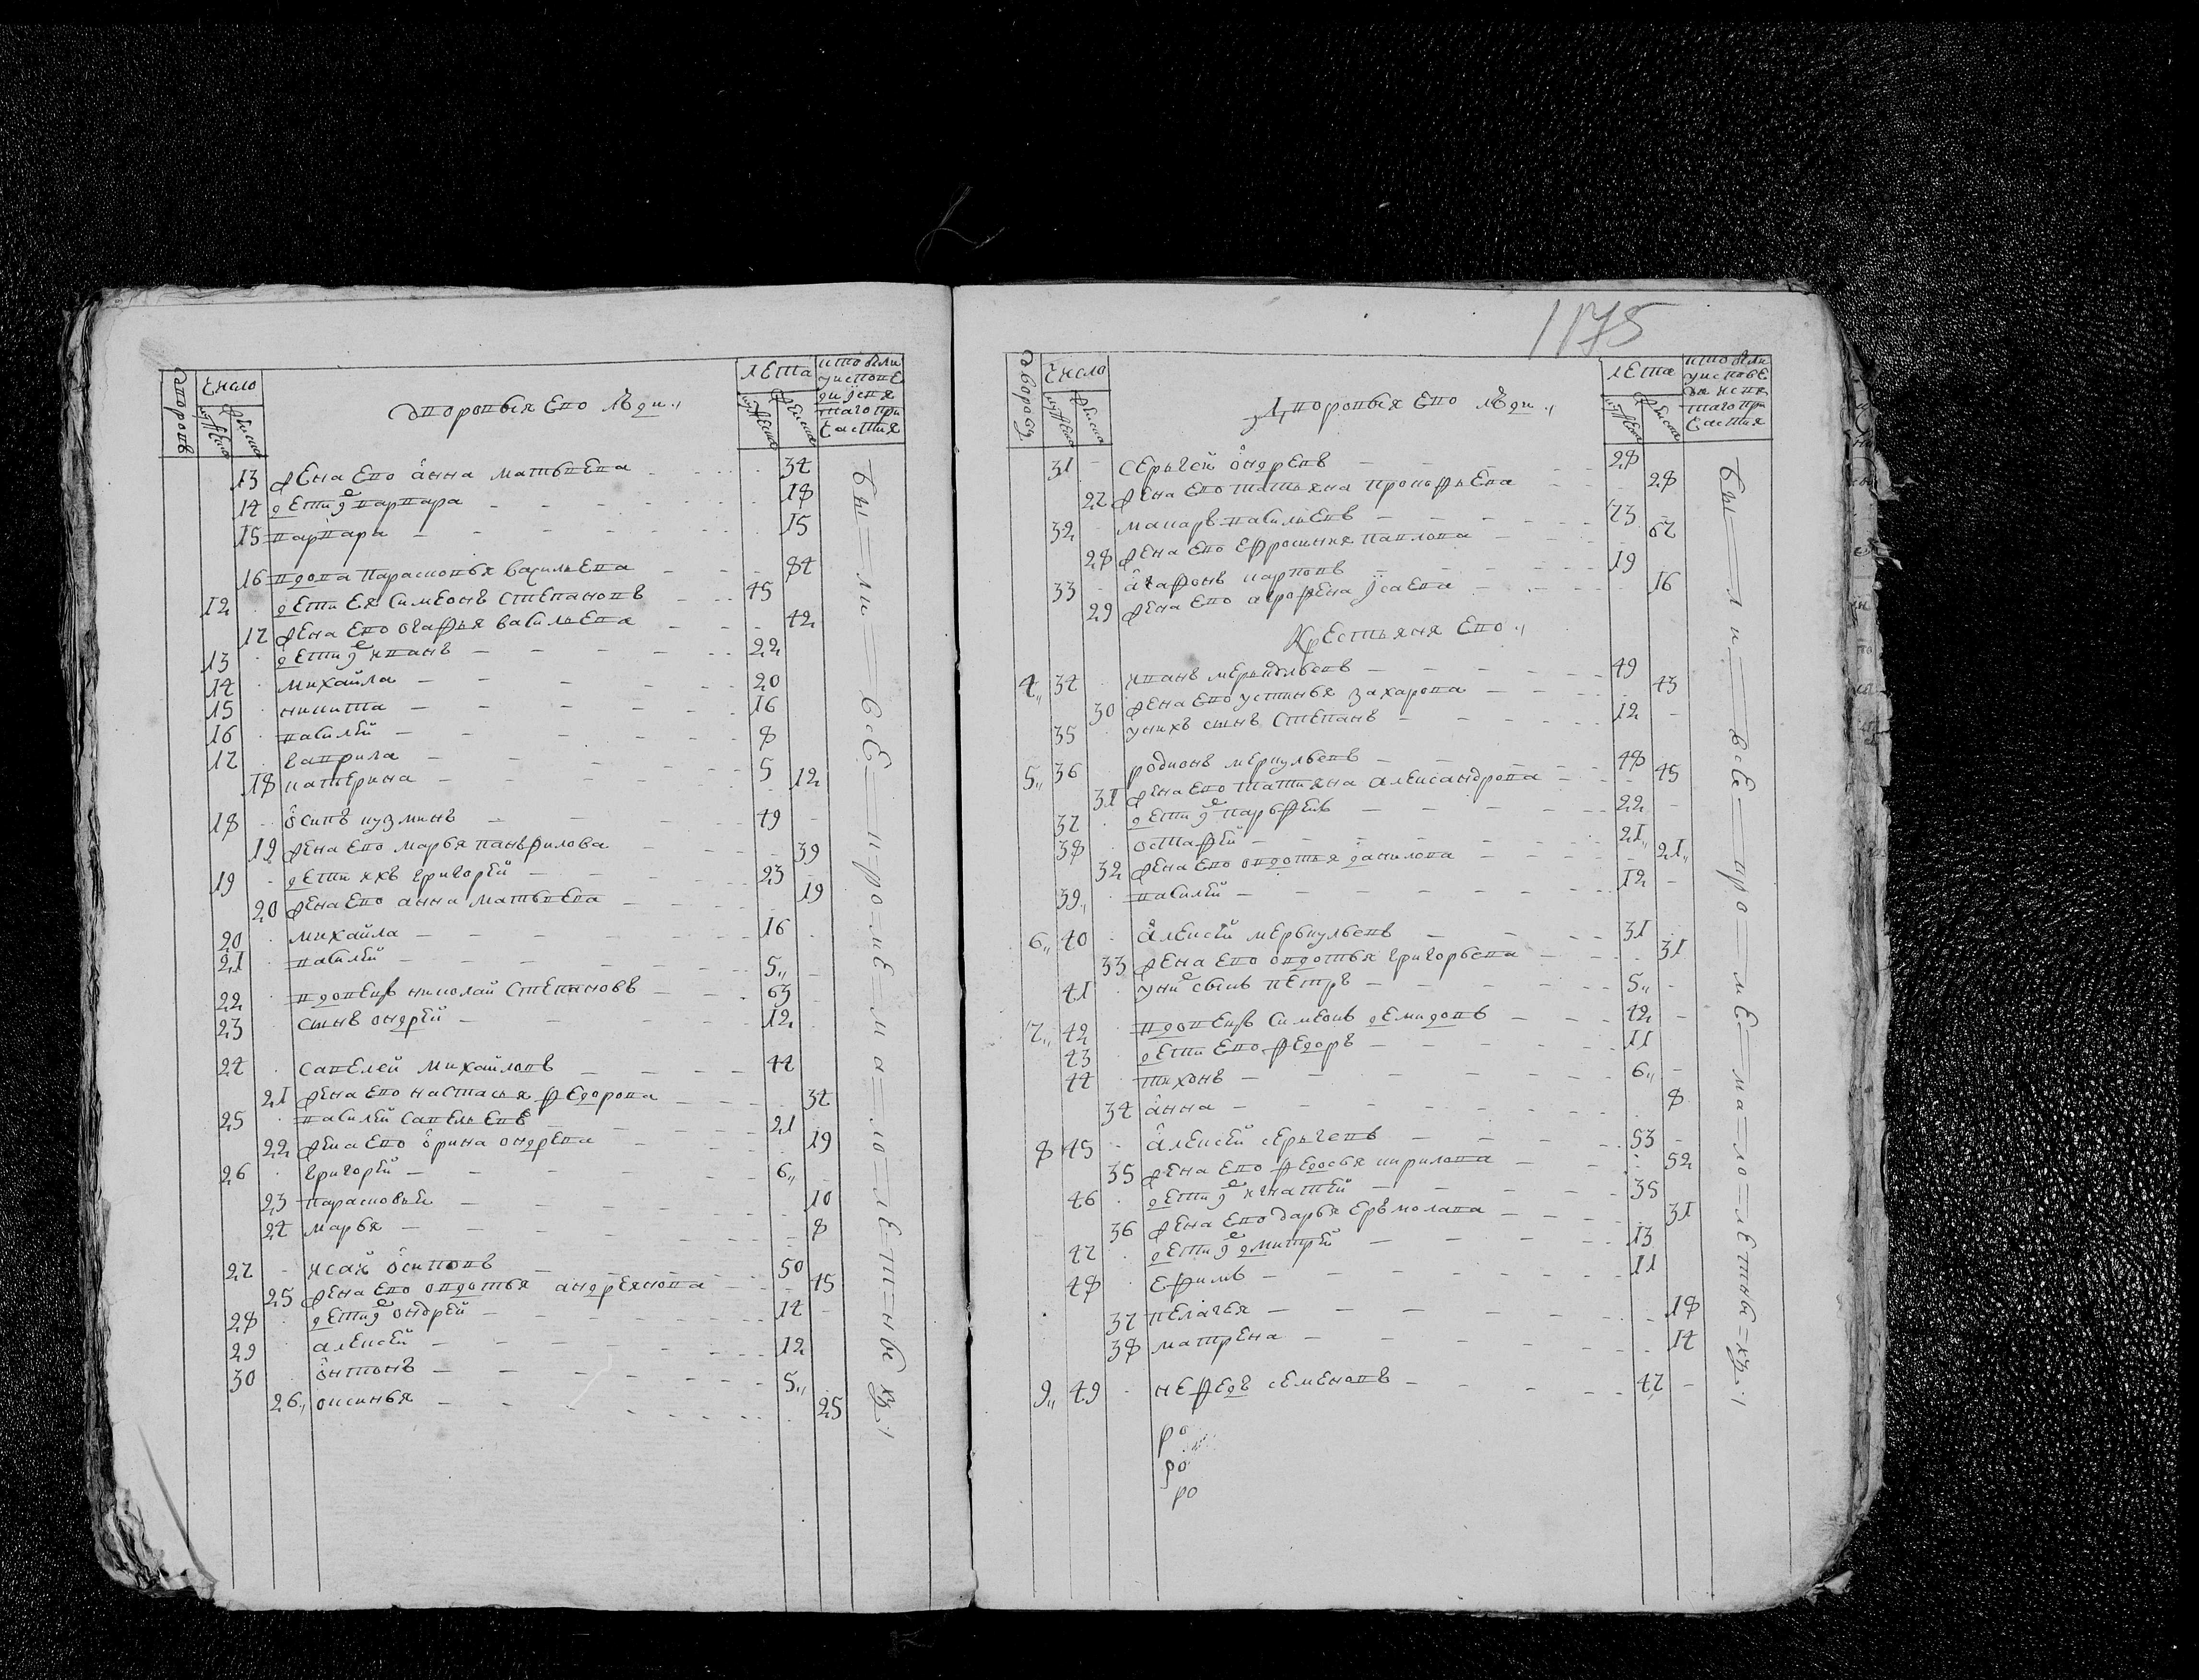 1175
дворовъ
Число
мужеска
женска
дворовыя ево лѣди
лета
мужеска
женска
кто были
у исповѣ
ди и свя
таго при
частия
13 жена ево анна матвѣева 34
14 дети варвара 18
15 варвара 15
16 вдова парасковья василъева 84
12 дети ея симеонъ степановъ 45
17 жена ево огафья василъева 42
13 дети иванъ 22
14 михайла 20
15 никита 16
16 василей 8
17 гаврила 5
18 катерина 12
18 осипъ кузминъ 49
19 жена ево марья панфилова 39
19 дети ихъ григорей 23
20 жена ево анна матвѣева 19
20 михайла 16
21 василей 5
22 вдовецъ николай степановъ 63
23 сынъ ондрей 12
24 савелей михайловъ 44
21 жена ево настасья федорова 34
25 василей савельевъ 21
22 жена ево орина ондрева 19
26 григорей 6
23 парасковья 10
24 марья 8
27 исай осиповъ 50
25 жена ево овдотья андреянова 45
28 дети ондрей 14
29 алексей 12
30 онтонъ 5
26 оксинья 25
бы ли все кроме малолетныхъ
дворовъ
Число
мужеска
женска
Дворовыя ево лѣди
лета
мужеска
женска
кто были
у исповѣ
ди и свя
таго при
частия
31 сергей ондревъ 28
27 жена ево татьяна прокофьева 28
32 макаръ василъевъ 73
28 жена ево ефросинья павлова 67
33 агафонъ карповъ 19
29 жена ево аграфена исаева 16
Крестьяня ево
4 34 иванъ меркульевъ 49
30 жена ево устинья захарова 43
35 у нихъ сынъ степанъ 12
5 36 родионъ меркульевъ 48
31 жена ево татияна александрова 45
37 дети парфенъ 22
38 остафей 21
32 жена ево овдотья данилова 21
39 василей 12
6 40 алексей меркульевъ 31
33 жена ево овдотья григорьева 31
41 у них сынъ петръ 5
7 42 вдовецъ симеонъ демидовъ 42
43 дети ево федоръ 11
44 тихонъ 6
34 анна 8
8 45 алексей сергеевъ 53
35 жена ево федосья кирилова 52
46 дети игнатей 35
36 жена ево дарья ермолава 31
47 дети дмитрей 13
48 ефимъ 11
37 пелагея 18
38 матрена 14
9 49 нефедъ семеновъ 47
ро
ро
ро
бы ли все кроме малолетныхъ